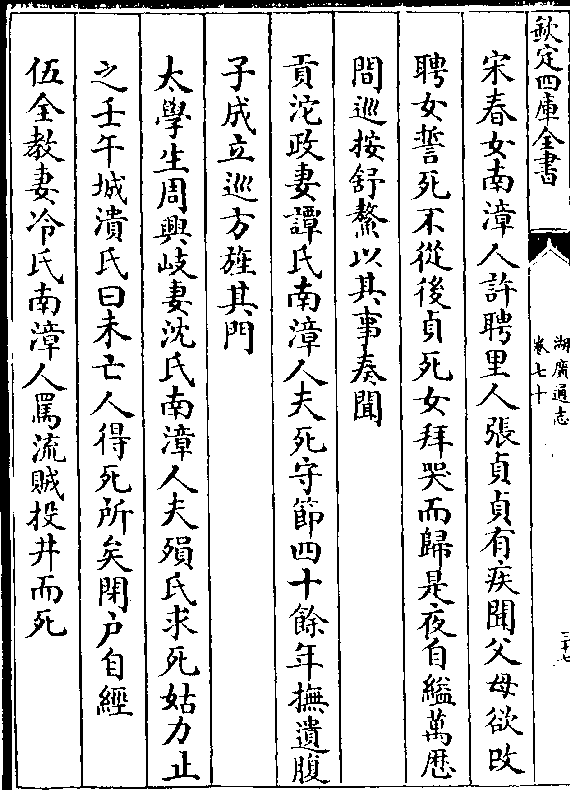 欽定四庫全書
湖廣通志
卷七十
宋春女南漳人許聘里人張貞貞有疾聞父母欲改
聘女誓死不從後貞死女拜哭而歸是夜自縊萬厯
間巡按舒鰲以其事奏聞
貢沱政妻譚氏南漳人夫死守節四十餘年撫遺腹
子成立巡方旌其門
太學生周興岐妻沈氏南漳人夫殞氏求死姑力止
之壬午城潰氏曰未亡人得死所矣閉户自經
伍全教妻冷氏南漳人罵流賊投井而死